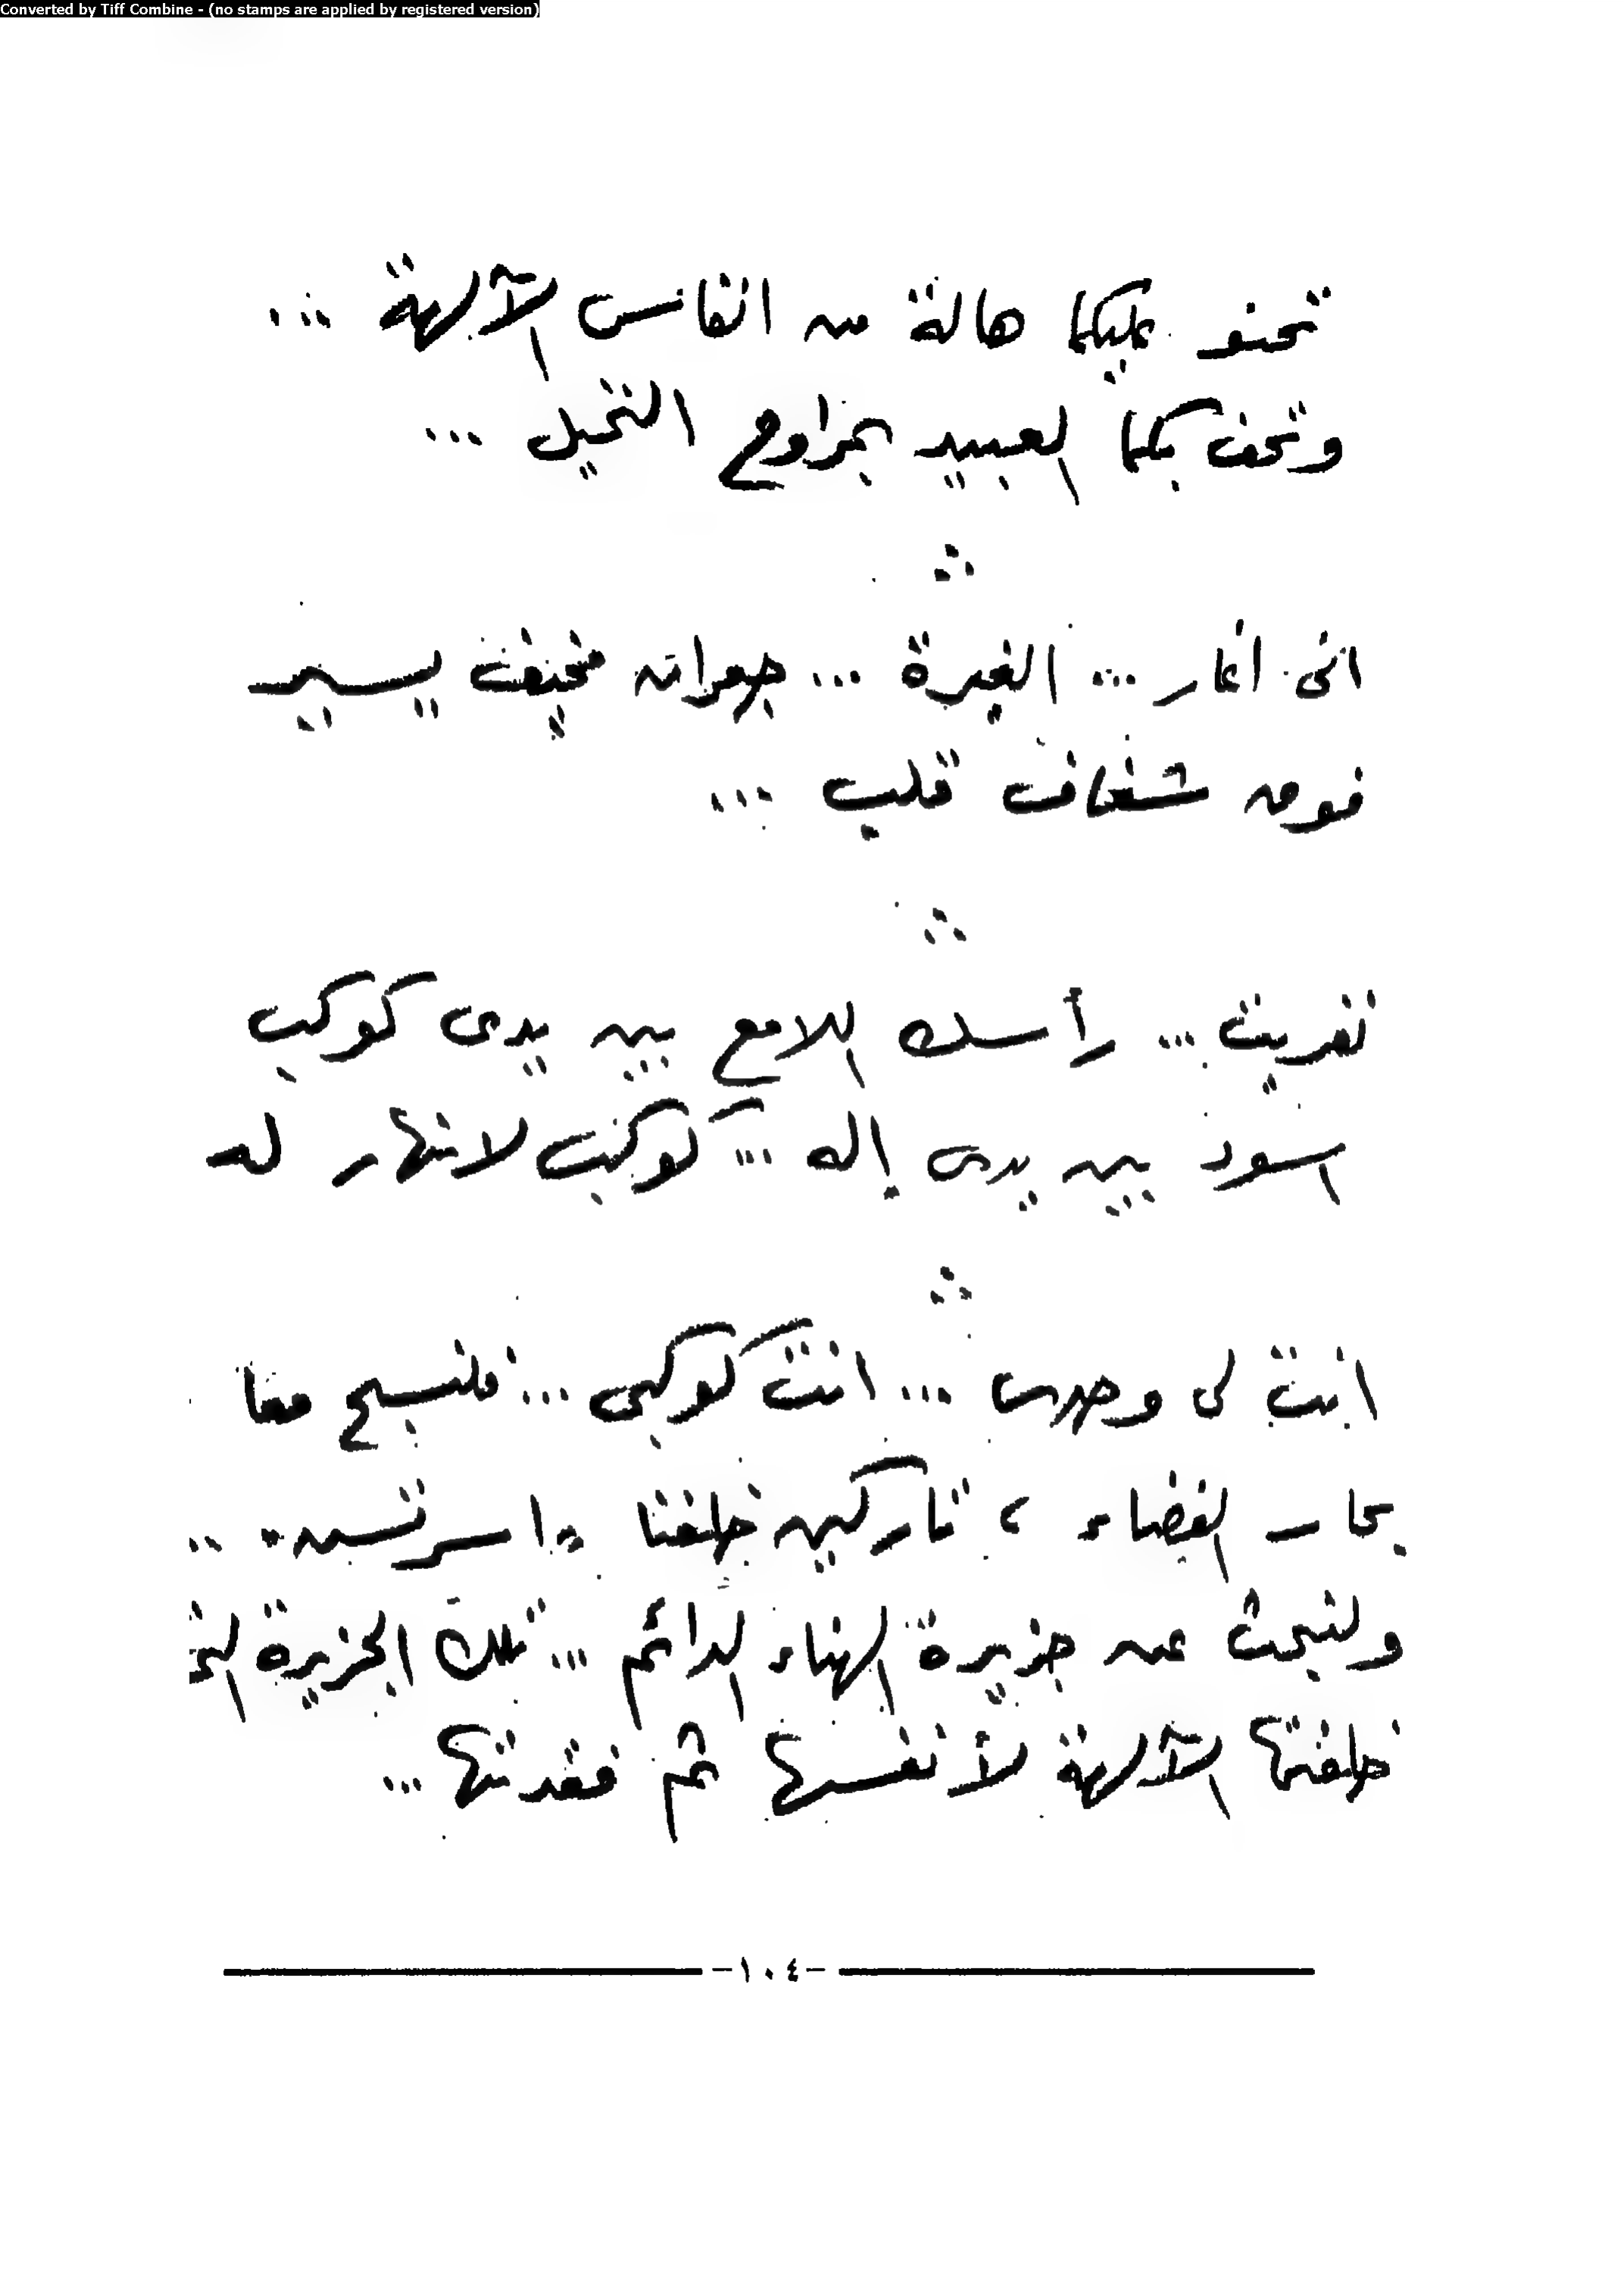 Converted by Tiff Combine - (no stamps are applied by registered version)
تحنو عليكما هالة من انفاس الآلهة ...
وتحف بكما العبيد بمراوح النخيل ...
انى أغار ... الغيرة ... جعران مخيف يسير
فوق شغاف قلبى ...
نفريت ... رأسك اللامع بين يدى كوكب
اسود بين يدى إله ... كوكب لا نهار له
انت لى وحدى ... انت كوكبى ... فلنسبح معا
بحار الفضاء ، تاركين خلفنا ..
ولنبحث عن جزيرة الهناء الدائم ... تلك الجزيرة التى
خلقتها الآلهة لأنفسها ثم فقدتها ...
-١٠٤-